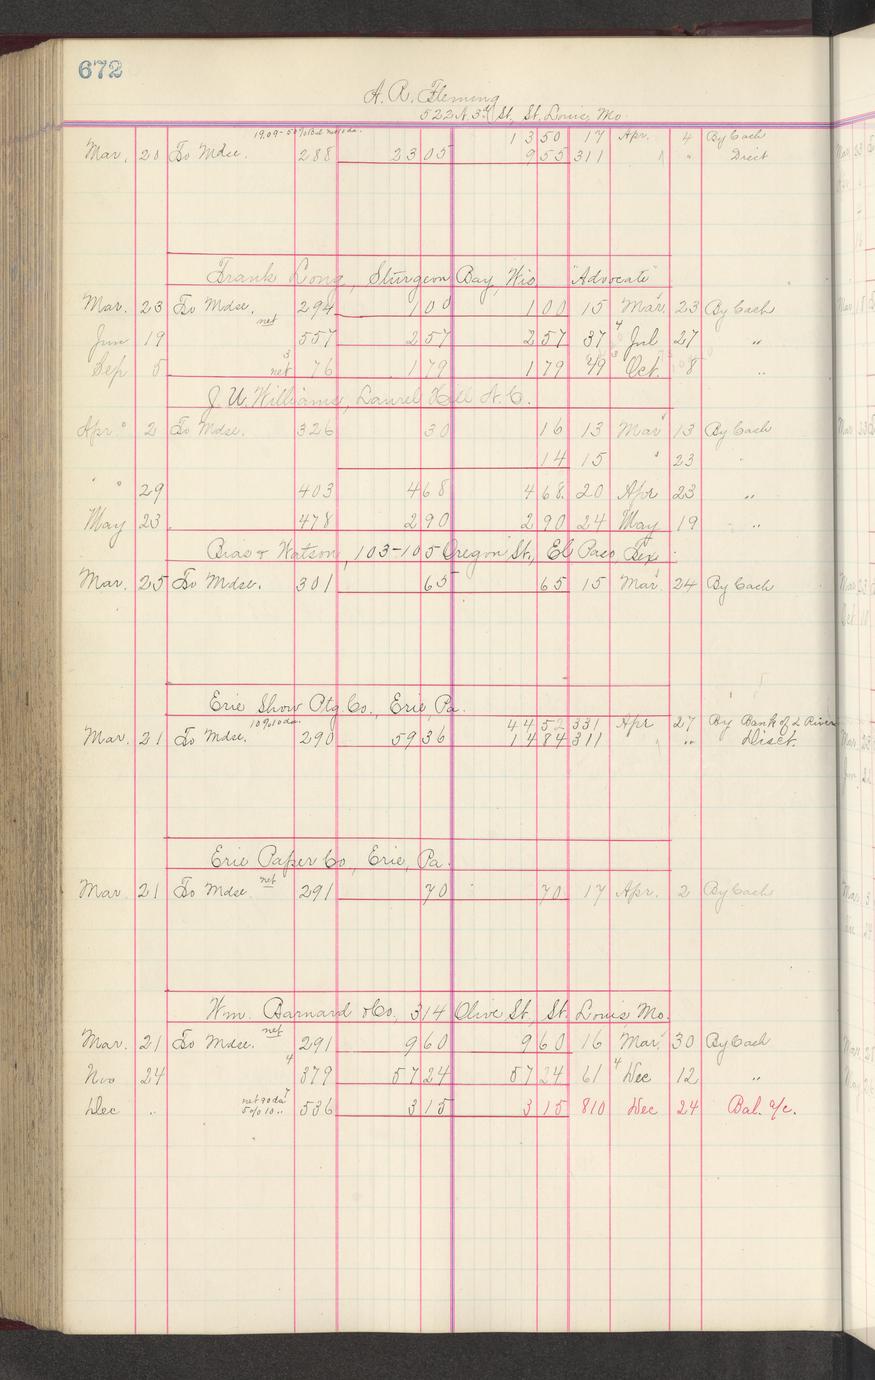 672
A. R. Fleming
522 N 3rd St, St. Louis, Mo.
13 50 17 Apr. 4 By Cash
Mar. 20 To Mdse. 288 23 05 9 55 311 " " Disct
Frank Long, Sturgeon Bay, Wis "Advocate"
Mar. 23 To Mdse. net 294 1 00 1 00 15 Mar. 23 By Cash
Jun 19 557 2 57 2 57 37 4 Jul 27 "
Sep 5 net 3 76 1 79 1 79 49 Oct. 8 "
J. U. Williams, Laurel Hill N. C.
Apr. 2 To Mdse. 326 30 16 13 Mar 13 By Cash
14 15 " 23 "
" " 29 403 4 68 4 68 20 Apr 23 "
May 23 478 2 90 2 90 24 May 19 "
Bias & Watson, 103-105 Oregon St., El Paso, Tex.
Mar. 25 To Mdse. 301 65 65 15 Mar. 24 By Cash
Erie Show Ptg. Co., Erie, Pa.
44 52 331 Apr 27 By Bank of 2 Rivers
Mar. 21 To Mdse. 10%10 da. 290 59 36 14 84 311 " " Disct.
Erie Paper Co, Erie, Pa.
Mar 21 To Mdse. net 291 70 70 17 Apr. 2 By Cash
Wm. Barnard & Co, 314 Olive St, St. Louis, Mo.
Mar. 21 To Mdse. net 291 9 60 9 60 16 Mar. 30 By Cash
Nov 24 4 379 57 24 57 24 61 4 Dec 12 "
Dec " net 90 da 7
5% 10 " 536 3 15 3 15 810 Dec 24 Bal. a/c.